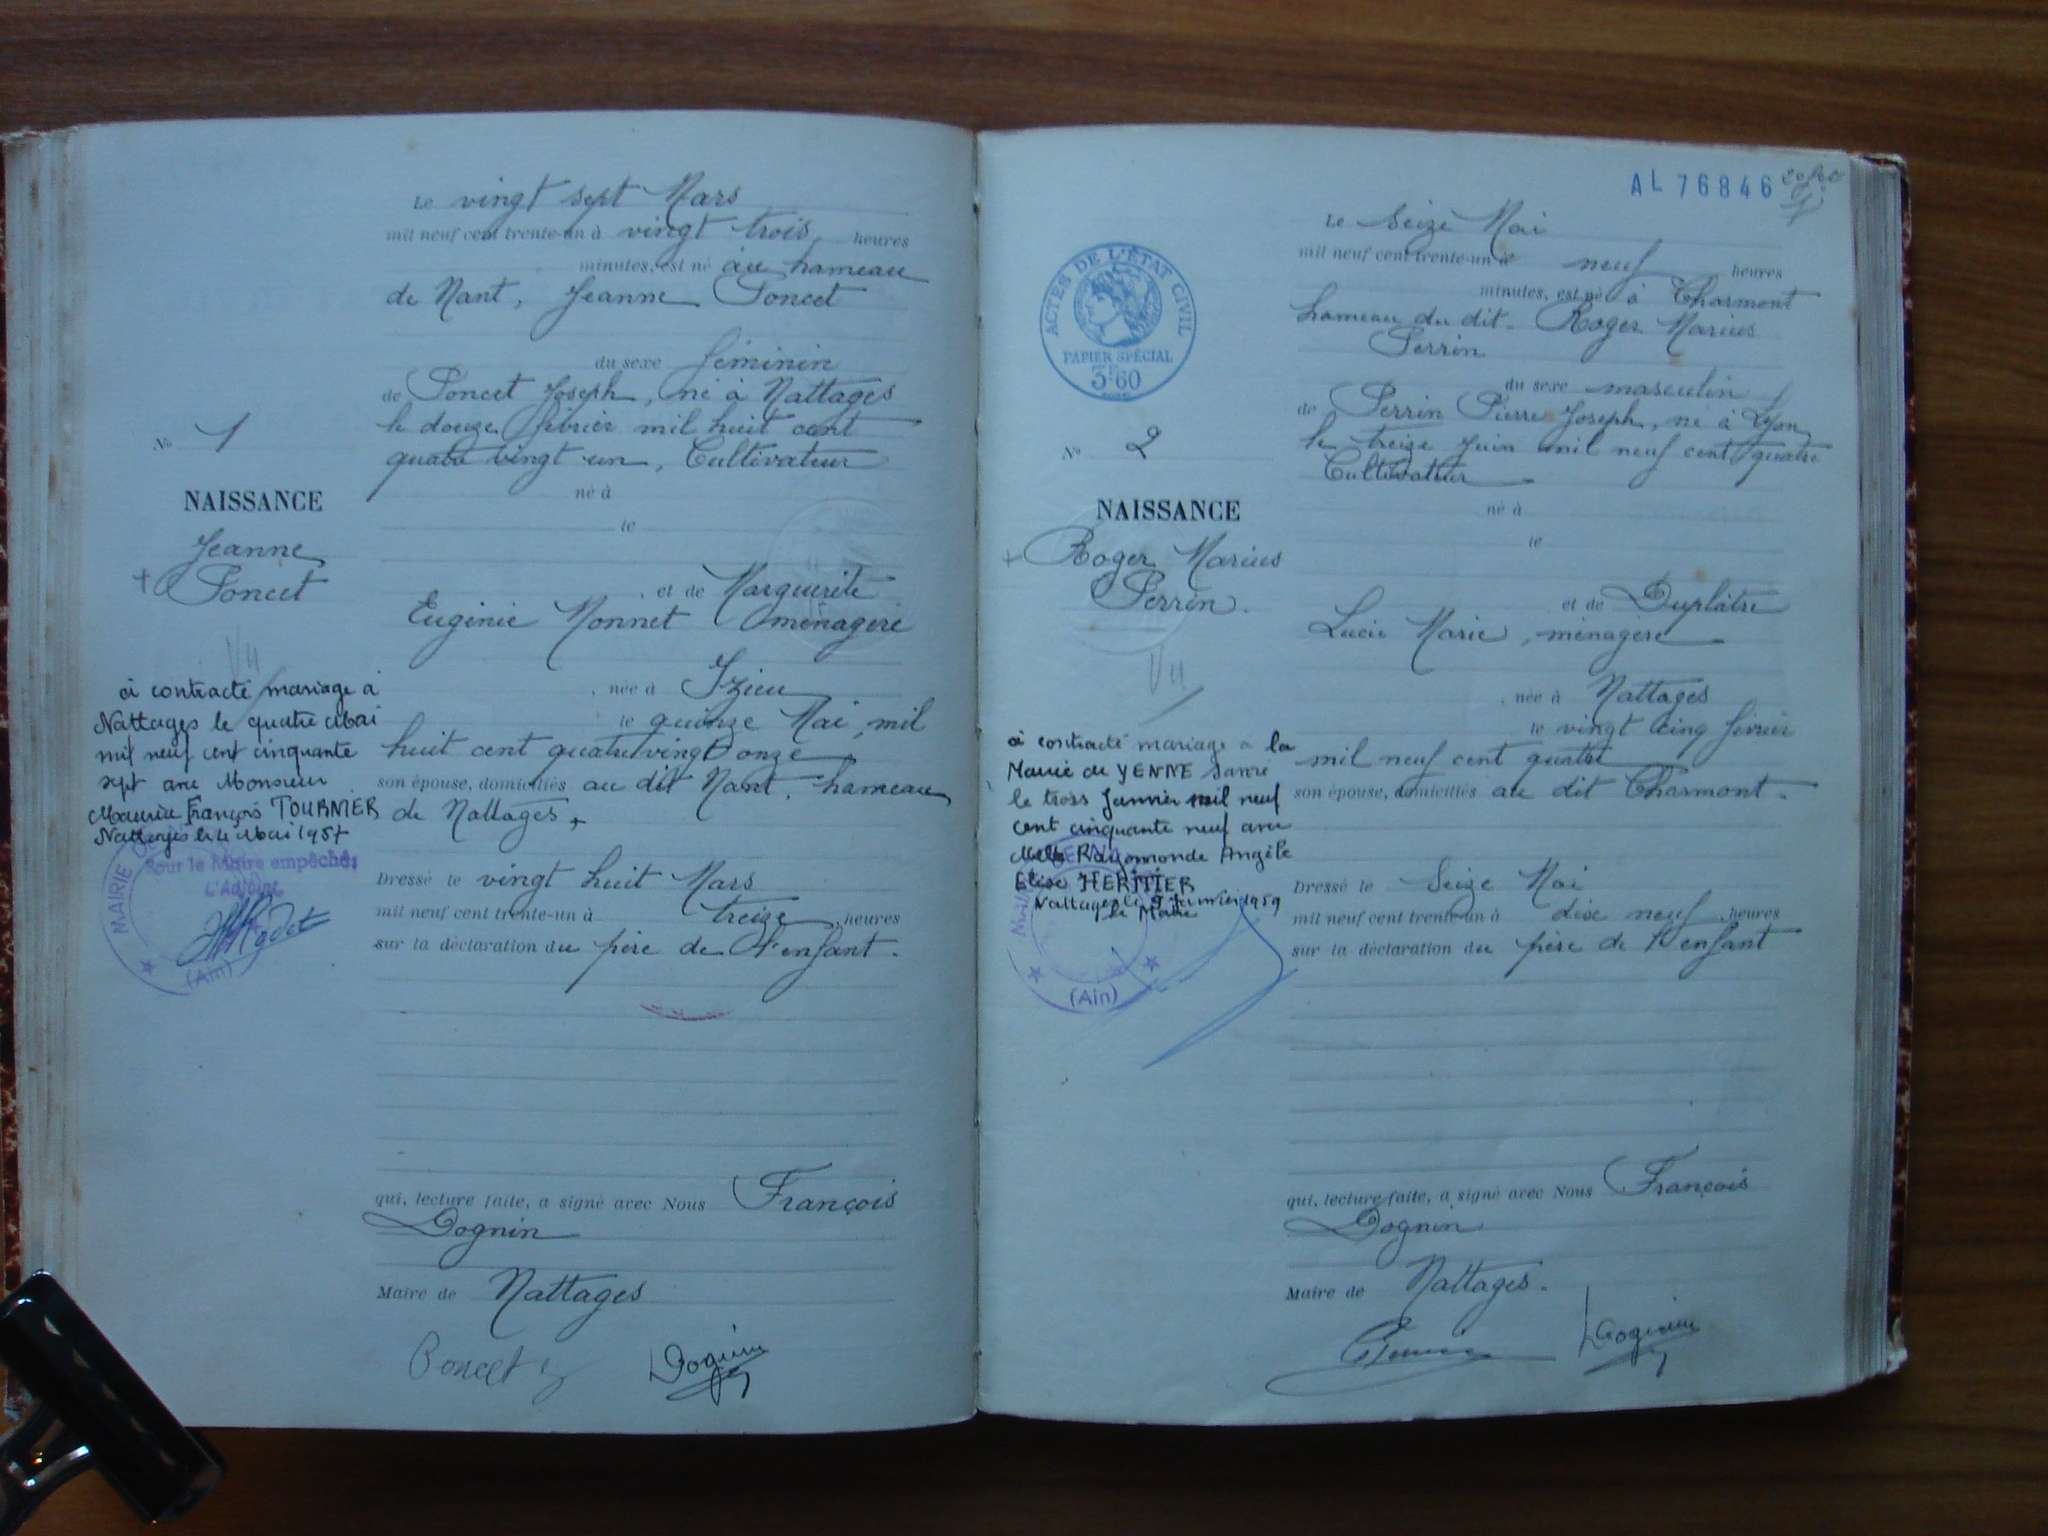 Le vingt sept Mars
mil neuf cent trente-un à vingt trois heures
minutes, est né au hameau
de Nant, Jeanne Poncet
du sexe féminin
de Poncet Joseph, né à Nattages
le douze février mil huit cent
quatre vingt un, Cultivateur
né à
le
et de Marguerite
Eugénie Monnet ménagère
, née à Izieu
le quinze Mai, mil
huit cent quatre vingt onze
son épouse, domiciliés au dit Nant, hameau
de Nattages
Dressé le vingt huit Mars
mil neuf cent trente-un à treize heures
sur la déclaration du père de l'enfant.
qui, lecture faite, a signé avec Nous François
Dognin
Maire de Nattages
Poncet Dognin
N° 1
NAISSANCE
Jeanne
+ Poncet
Vu
a contracté mariage à
Nattages le quatre Mai
mil neuf cent cinquante
sept avec Monsieur
Maurice François TOURNIER
Nattages le 4 Mai 1957
Pour le Maire empêché:
L'Adjoint
MAIRIE DE
(Ain)
AL 76846
Le Seize Mai
mil neuf cent trente-un à neuf heures
minutes, est né à Charmont
hameau du dit. Roger Marius
Perrin
du sexe masculin
de Perrin Pierre Joseph, né à Lyon
le treize Juin mil neuf cent quatre
Cultivateur
né à
le
et de Duplâtre
Lucie Marie, ménagère
, née à Nattages
le vingt cinq février
mil neuf cent quatre
son épouse, domiciliés au dit Charmont.
Dressé le Seize Mai
mil neuf cent trente-un à dix neuf heures
sur la déclaration du père de l'enfant
qui, lecture faite, a signé avec Nous François
Dognin
Maire de Nattages.
Dognin
ACTES DE L'ÉTAT CIVIL
PAPIER SPÉCIAL
3F60
N° 2
NAISSANCE
+ Roger Marius
Perrin.
Vu
a contracté mariage à la
Mairie de YENNE Savoie
le trois Janvier mil neuf
cent cinquante neuf avec
Melle Raymonde Angèle
Elise HERITIER
Nattages le Janvier 1959
le Maire
(Ain)